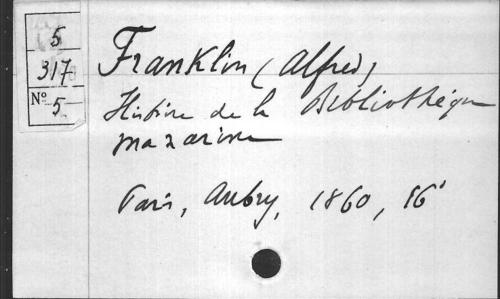 5
317
Nº 5
Franklin (Alfred)
Histoire de la Bibliothèque
mazarine
Paris, Aubry, 1860, 16°